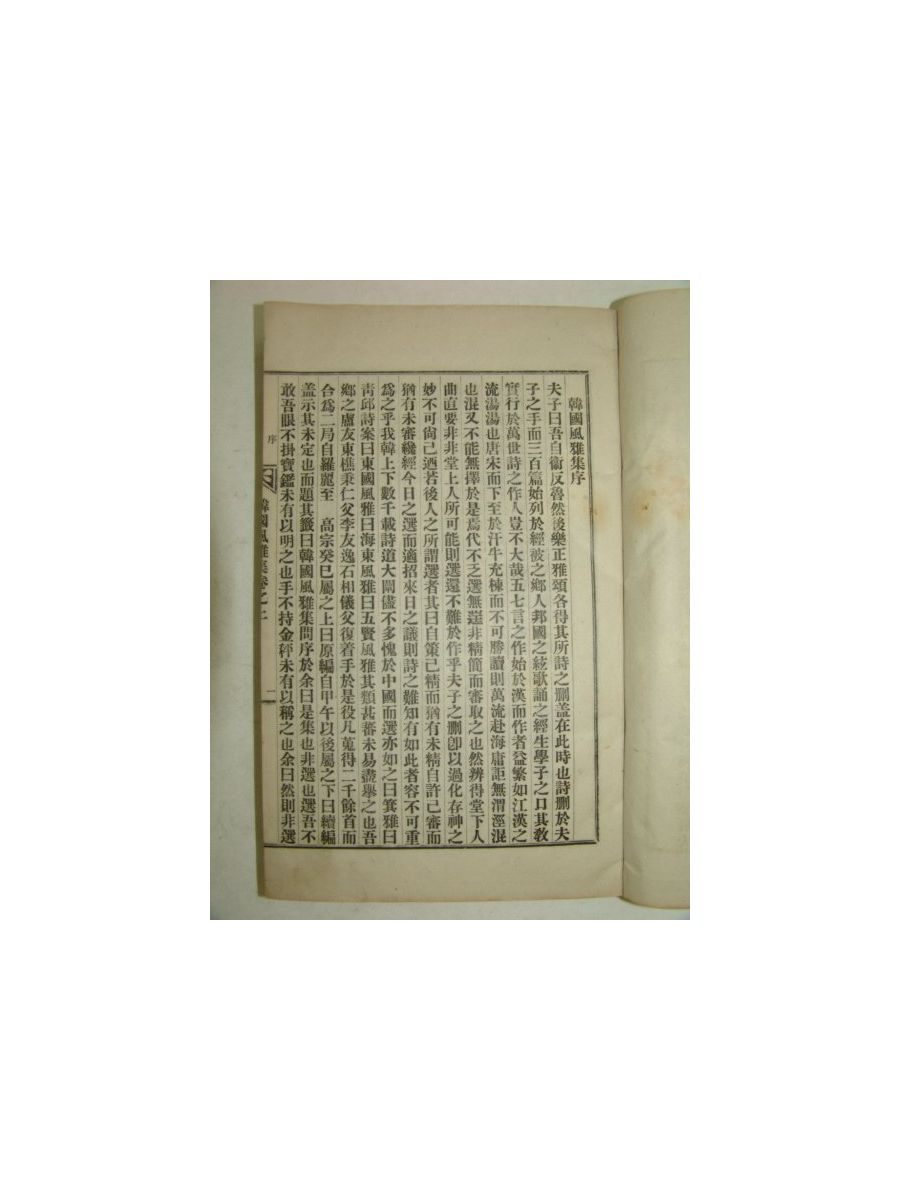 韓國風雅集序
夫子曰吾自衞反魯然後樂正雅頌各得其所詩之刪盖在此時也詩刪於夫
子之手而三百篇始列於經被之鄉人邦國之絃歌誦之經生學子之口其敎
實行於萬世詩之作人豈不大哉五七言之作始於漢而作者益繁如江漢之
流湯湯也唐宋而下至於汗牛充棟而不可勝讀則萬流赴海庸詎無渭涇混
也混又不能無擇於是焉代不乏選無選非精簡而審取之也然辨得堂下人
曲直要非堂上人所可能則選還不難於作乎夫子之刪卽以過化存神之
妙不可尙已廼若後人之所謂選者其曰自策已精而猶有未精自許已審而
猶有未審纔經今日之選而適招來日之議則詩之難知有如此者容不可重
爲之乎我韓上下數千載詩道大闡儘不多愧於中國而選亦如之曰箕雅曰
靑邱詩案曰東國風雅曰海東風雅曰五賢風雅其類甚蕃未易盡擧之也吾
鄉之盧友東樵秉仁父李友逸石相儀父復着手於是役凡蒐得二千餘首而
合爲二局自羅麗至 高宗癸巳屬之上曰原編自甲午以後屬之下曰續編
盖示其未定也而題其籤曰韓國風雅集問序於余曰是集也非選也選吾不
敢吾眼不掛寶鑑未有以明之也手不持金秤未有以稱之也余曰然則非選
序
韓國風雅集卷之一
一